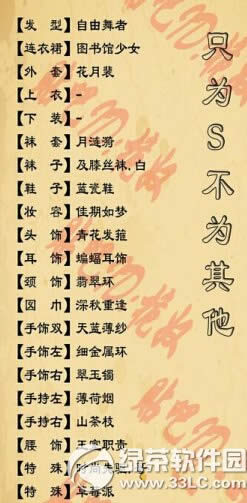 【发 型】自由舞者
【连衣裙】图书馆少女
【外 套】花月裝
【上 衣】-
【下 装】-
【袜 套】月涟漪
【袜 子】及膝丝袜.白
【鞋 子】蓝瓷鞋
【妆 容】佳期如梦
【头 饰】青花发箍
【耳 饰】蝙蝠耳饰
【颈 饰】翡翠环
【围 巾】深秋重逢
【手饰双】天蓝薄纱
【手饰左】细金属环
【手饰右】翠玉镯
【手持左】薄荷烟
【手持右】山茶枝
【腰 饰】王室职责
【特 殊】
【特 殊】草莓派
只为S不为其他
绿茶软件园
33LC.com